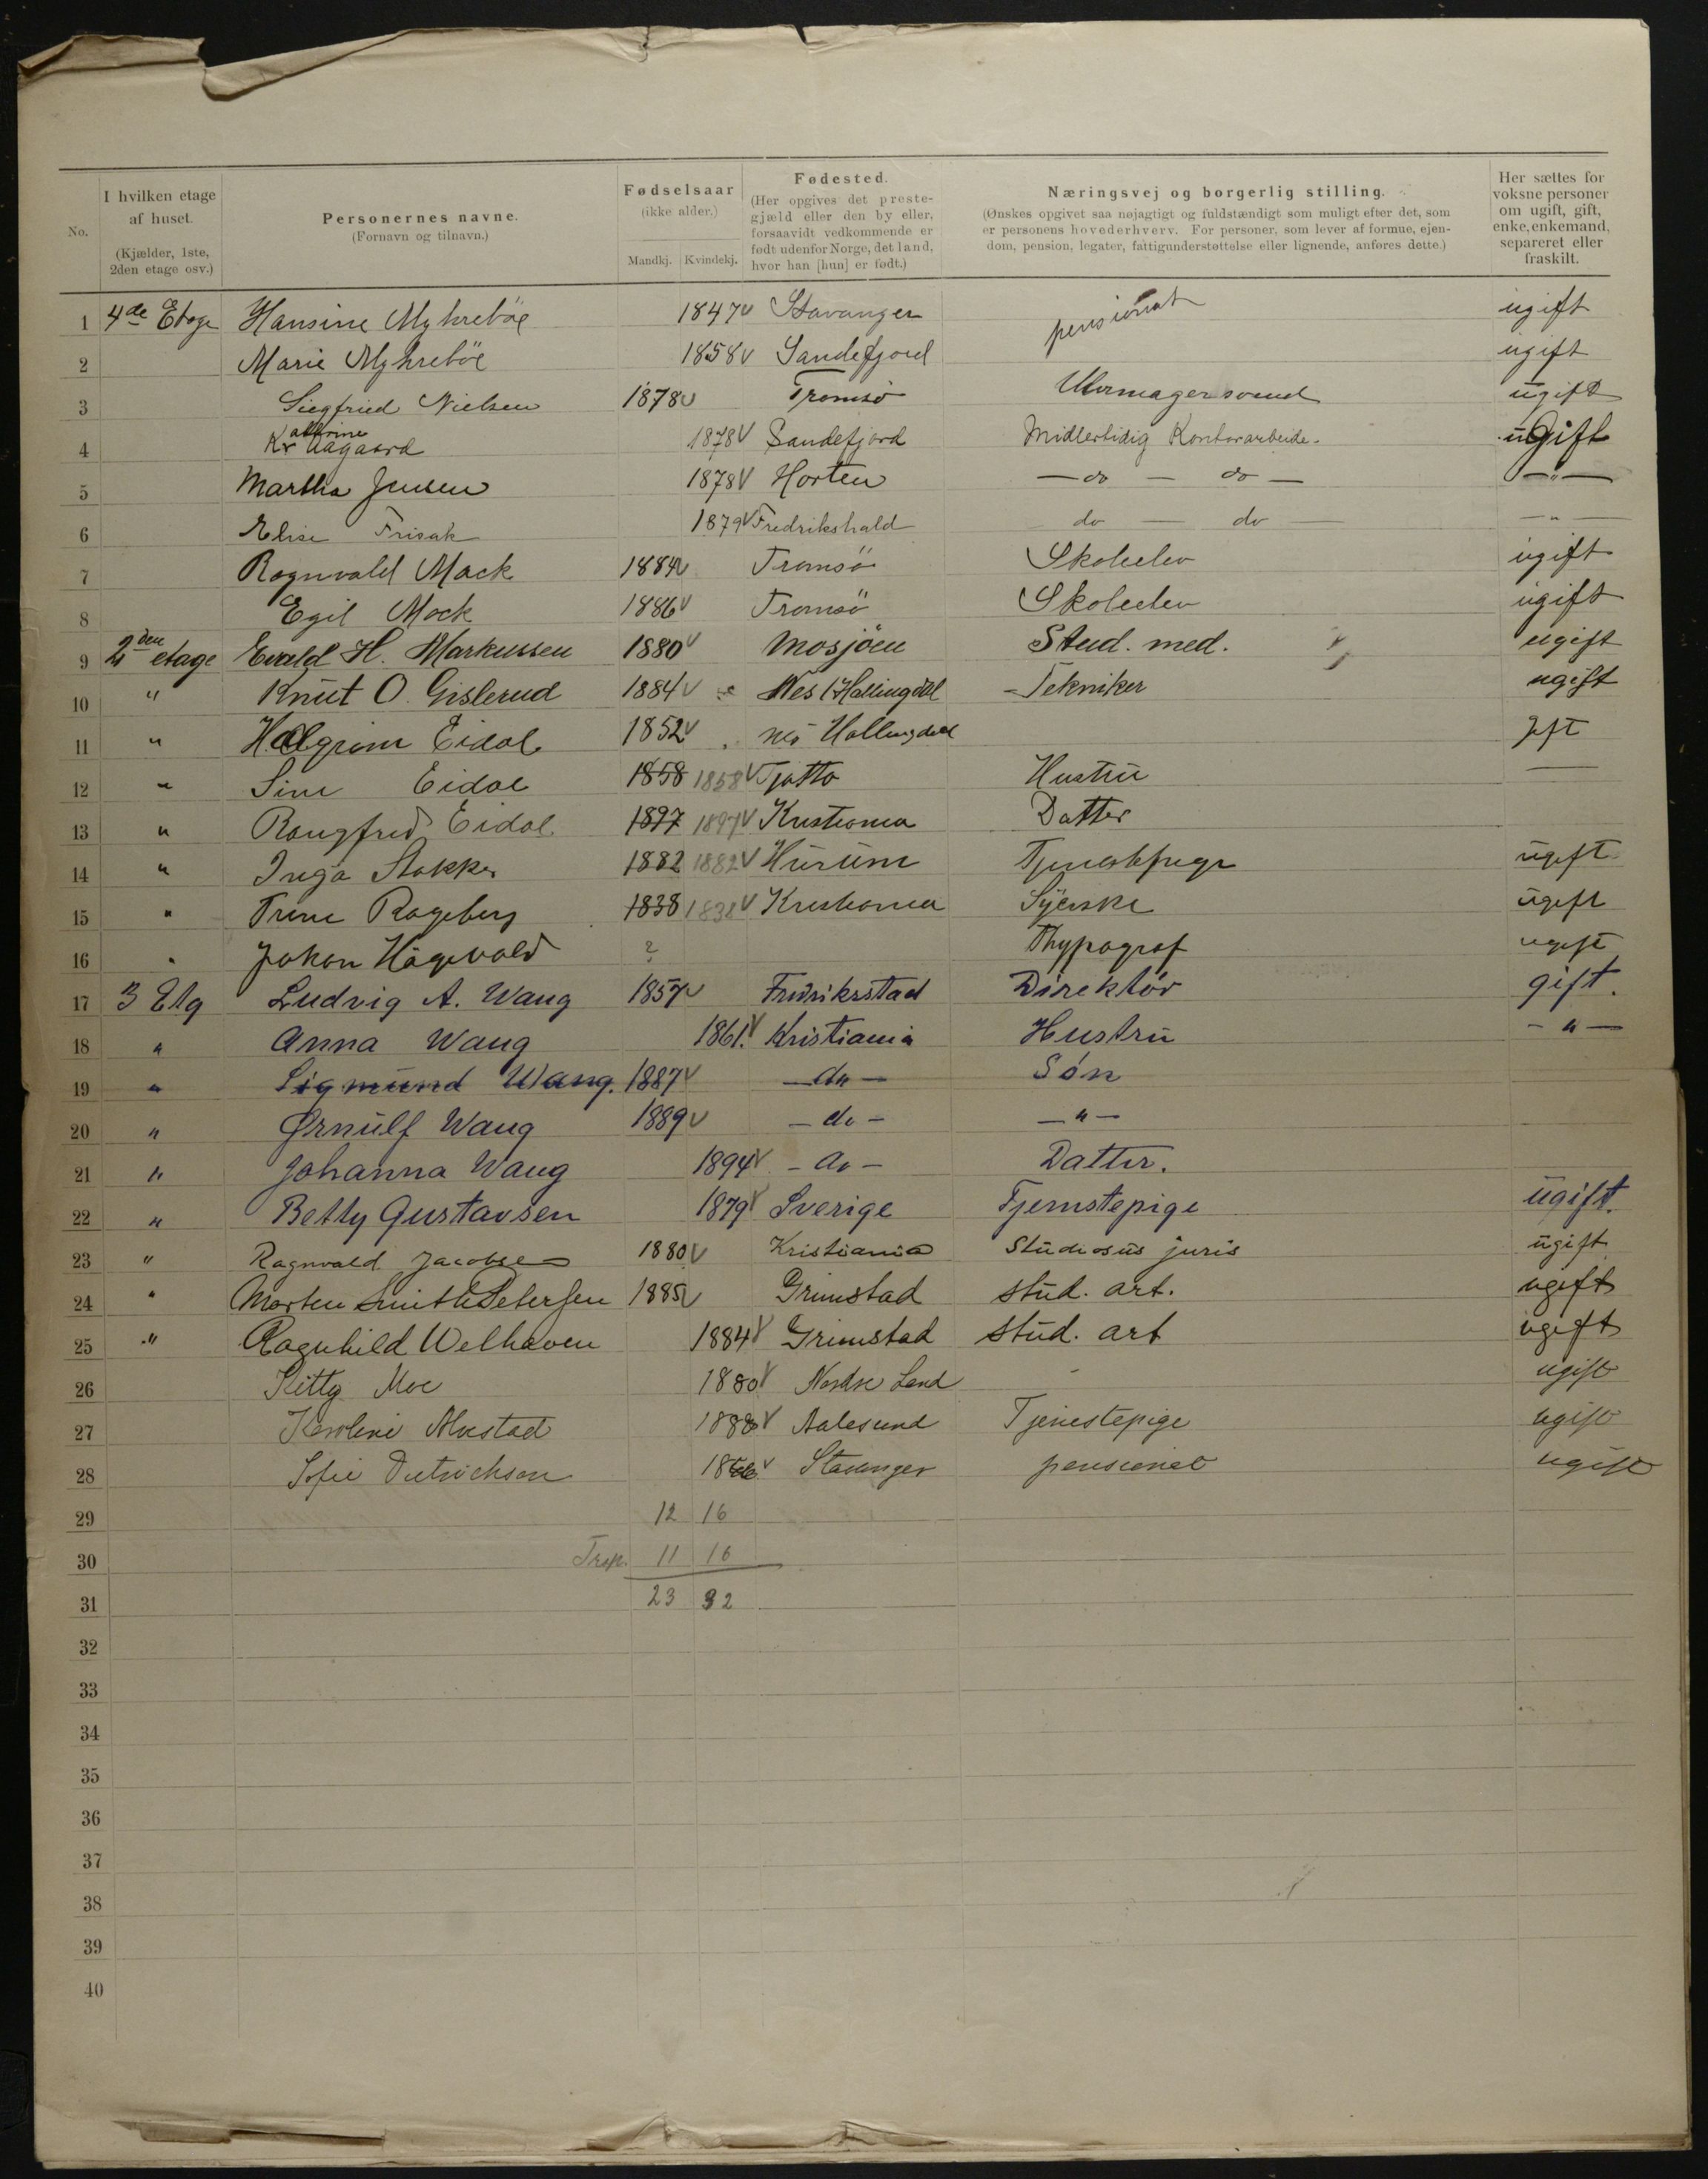 No.
I hvilken etage af huset. (Kjælder, 1ste, 2den etage osv.)
Personernes navne. (Fornavn og tilnavn.)
Fødselsaar (ikke alder.) Mandkj. Kvindekj.
Fødested. (Her opgives det prestegjæld eller den by eller, forsaavidt vedkommende er født udenfor Norge, det land, hvor han [hun] er født.)
Næringsvej og borgerlig stilling. (Ønskes opgivet saa nøjagtigt og fuldstændigt som muligt efter det, som er personens hovederhverv. For personer, som lever af formue, ejendom, pension, legater, fattigunderstøttelse eller lignende, anføres dette.)
Her sættes for voksne personer om ugift, gift, enke, enkemand, separeret eller fraskilt.
1 4de Etage Hansine Myhreböe 1847 v Stavanger pensionat ugift
2 Marie Myhreböe 1858 v Sandefjord ugift
3 Siegfried Nielsen 1878 v Tromsø Urmagersvend ugift
4 Kathrine Aagaard 1878 v Sandefjord Midlertidig Kontorarbeide. uGift
5 Martha Jensen 1878 v Horten — do — do — — " —
6 Elise Frisak 1879 v Fredrikshald — do — do — — " —
7 Ragnvald Mack 1884 v Tromsö Skoleelev ugift
8 Egil Mack 1886 v Tromsö Skoleelev ugift
9 2den etage Evald H. Markussen 1880 v Mosjöen Stud. med. ugift
10 " Knut O. Gislerud 1884 v Nes Hallingdal Tekniker ugift
11 " Hallgrim Eidal 1852 v Hallingdal gift
12 " Sine Eidal 1858 1858 v Tjøtto Hustru —
13 " Eidal 1897 1897 v Kristiania Datter
14 " Inga Stokke 1882 1882 v Hurum ugift
15 " Trine Rogeberg 1838 1838 v Kristiania Syerske ugift
16 " Johan Hågevold ? Thypograf ugift
17 3 Etg Ludvig A. Wang 1857 v Fredriksstad Direktör gift.
18 " Anna Wang 1861. v Kristiania Hustru — " —
19 " Sigmund Wang. 1887 v — do — Sön
20 " Ørnulf Wang 1889 v — do — — " —
21 " Johanna Wang 1894 v — do — Datter.
22 " Betty Gustavsen 1879 v Sverige Tjenstepige ugift.
23 " Ragnvald Jacobsen 1880 v Kristiania Studiosus juris ugift
24 " Morten Smith Petersen 1885 v Grimstad stud. art. ugift
25 " Ragnhild Welhaven 1884 v Grimstad stud. art ugift
26 Kitty Moe 1880 v Nordre Land ugift
27 Karoline 1888 v Aalesund Tjenestepige ugift
28 Sofie Dietrichson v Stavanger pensionat ugift
29 12 16
30 Trsp. 11 16
31 23 32
32
33
34
35
36
37
38
39
40